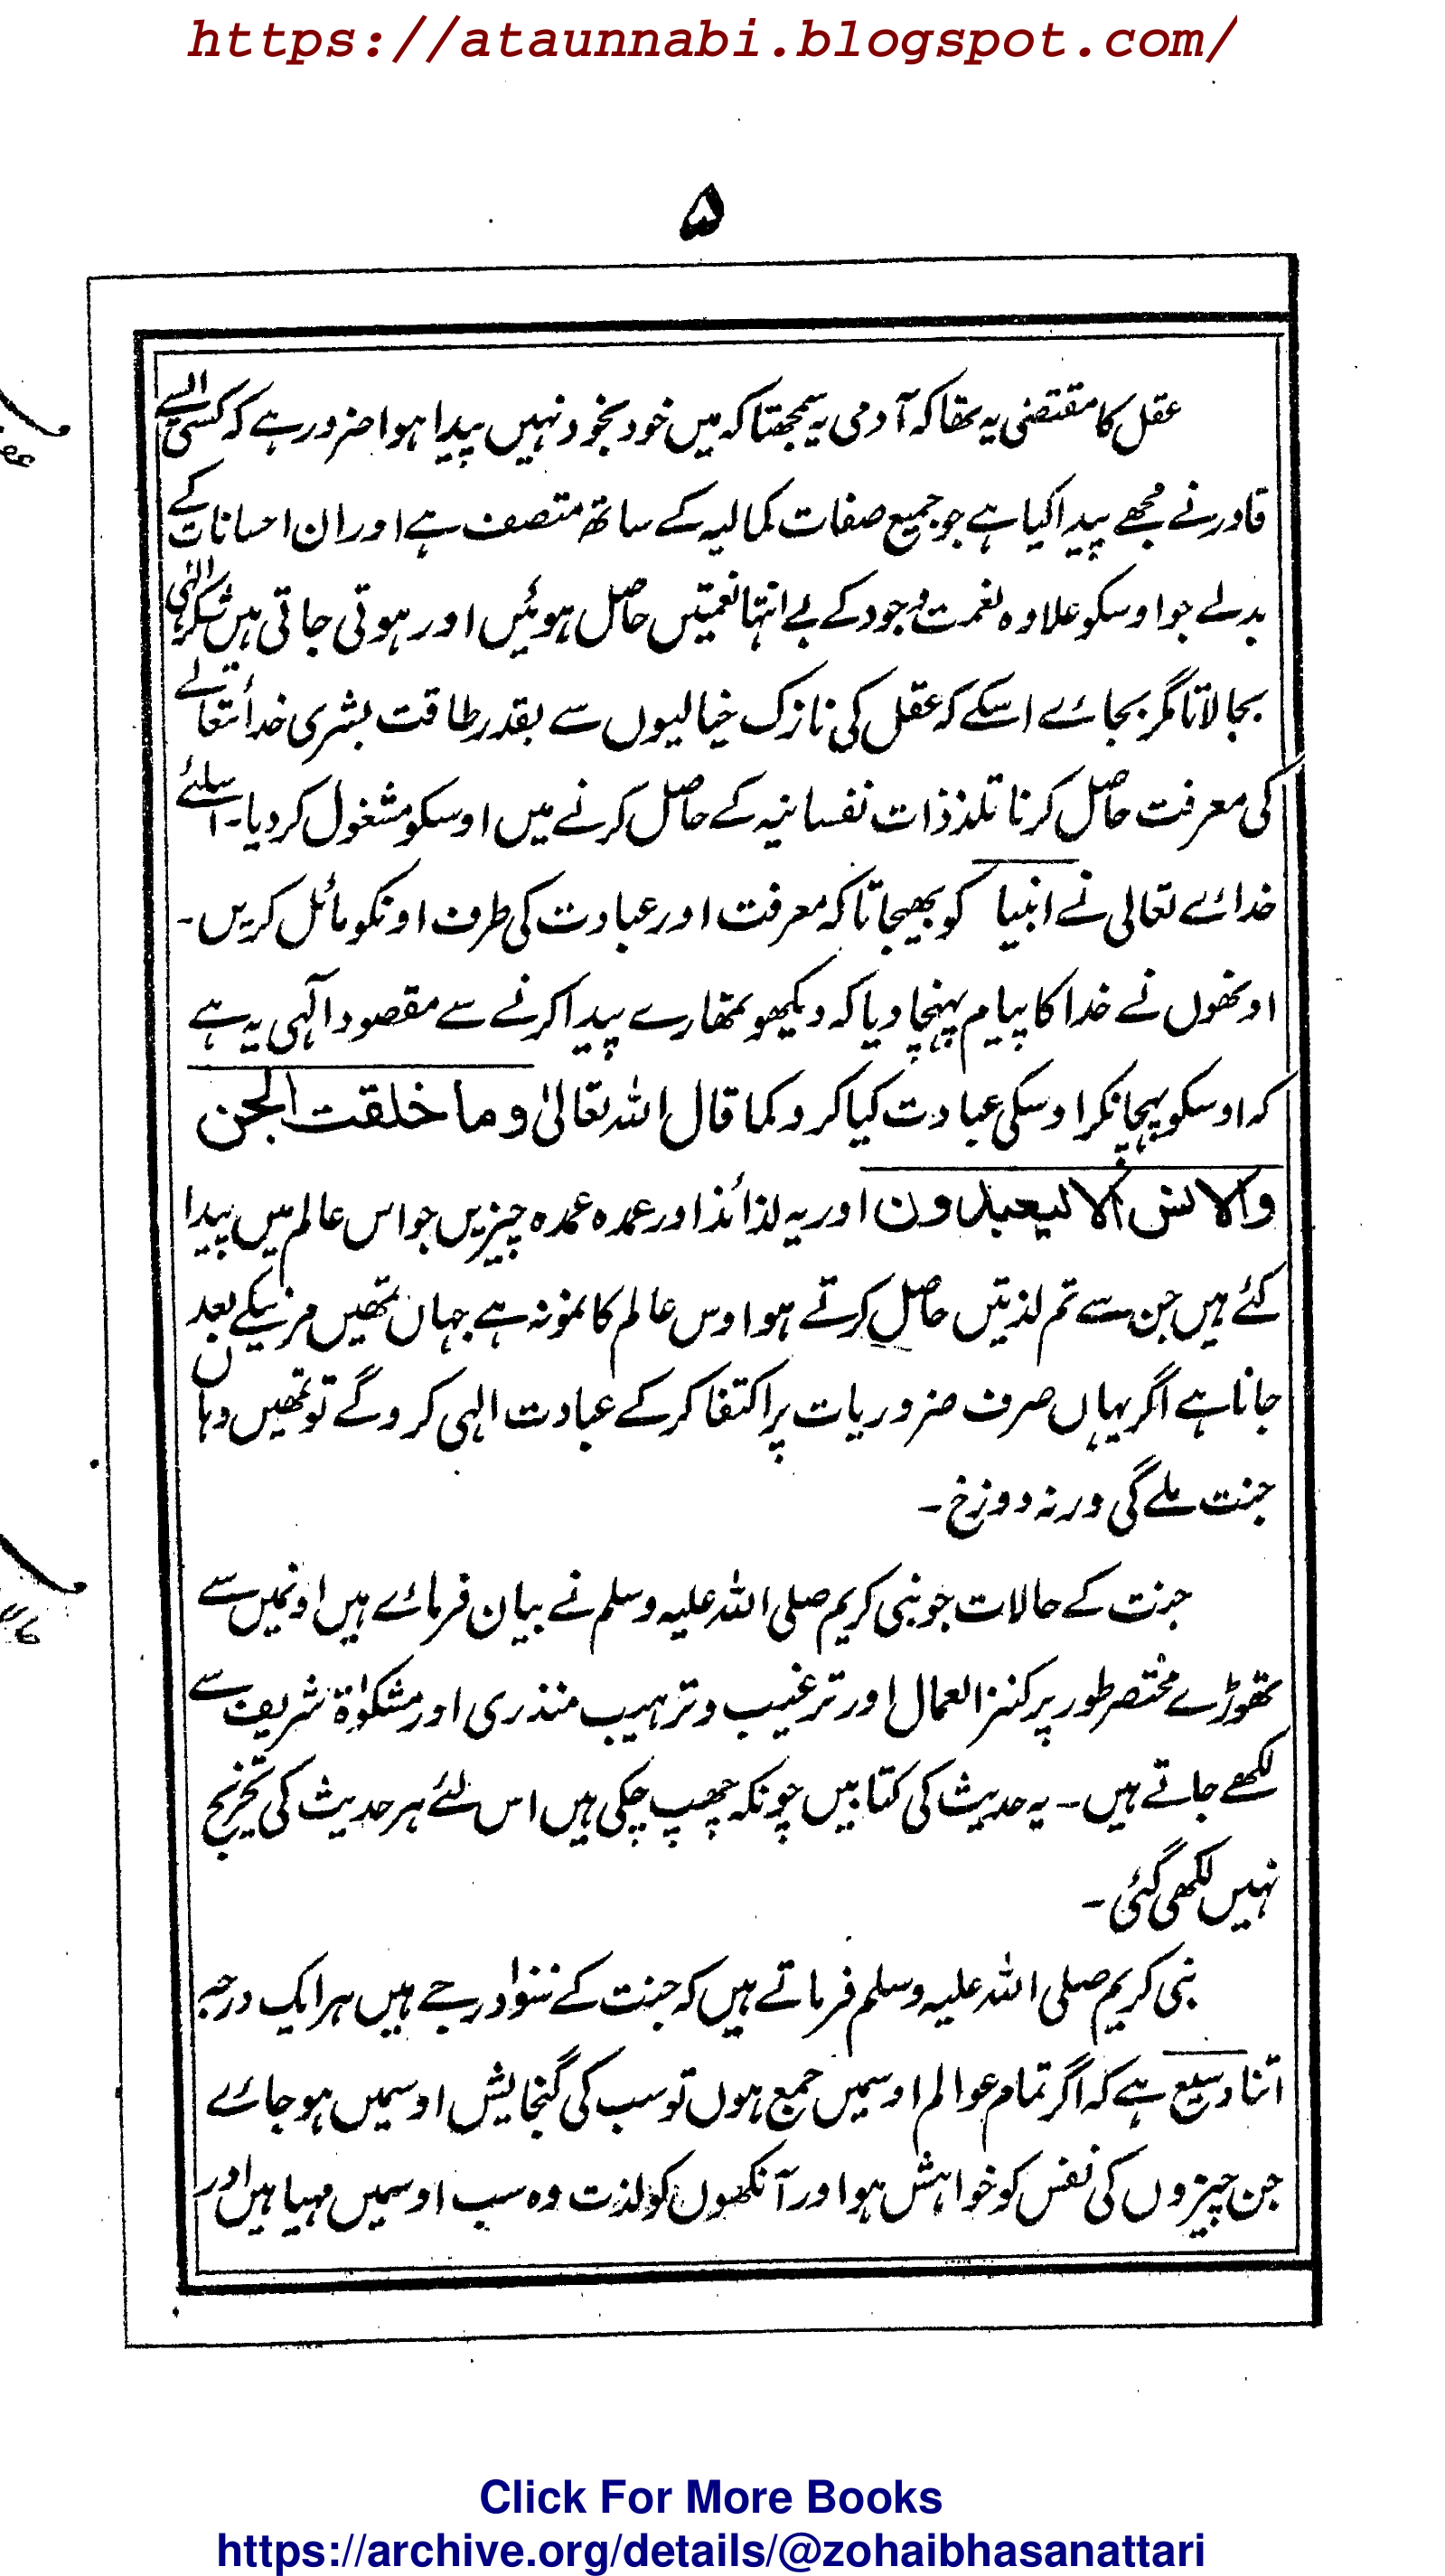 https://ataunnabi.blogspot.com/
۵
عقل کا مقتضی یہ تھا کہ آدمی یہ سمجھتا کہ میں خود بخود نہیں پیدا ہوا ضرور ہے کہ کسی ایسے
قادر نے مجھے پیدا کیا ہے جو جمیع صفات کمالیہ کے ساتھ متصف ہے اور ان احسانات کے
بدلے جو اوسکو علاوہ نعمت وجود کے بے انتہا نعمتیں حاصل ہوئیں اور ہوتی جاتی ہیں شکر الٰہی
بجا لاتا مگر بجائے اسکے کہ عقل کی نازک خیالیوں سے بقدر طاقت بشری خدائتعالے
کی معرفت حاصل کرنا تلذذات نفسانیہ کے حاصل کرنے میں اوسکو مشغول کر دیا۔ اسلئے
خدائے تعالی نے انبیا کو بھیجا تاکہ معرفت اور عبادت کی طرف اونکو مائل کریں۔
اونھوں نے خدا کا پیام پہنچا دیا کہ دیکھو تمھارے پیدا کرنے سے مقصود الٓہی یہ ہے
کہ اوسکو پہچانکر اوسکی عبادت کیا کرو کما قال اللہ تعالیٰ وما خلقت الجن
والانس الا لیعبدون اور یہ لذائذ اور عمدہ عمدہ چیزیں جو اس عالم میں پیدا
کئے ہیں جن سے تم لذتیں حاصل کرتے ہو اوس عالم کا نمونہ ہے جہاں تمھیں مرنیکے بعد
جانا ہے اگر یہاں صرف ضروریات پر اکتفا کرکے عبادت الہی کروگے تو تمھیں وہاں
جنت ملے گی ورنہ دوزخ۔
جنت کے حالات جو نبی کریم صلی اللہ علیہ وسلم نے بیان فرمائے ہیں اونمیں سے
تھوڑے مختصر طور پر کنز العمال اور ترغیب و ترہیب منذری اور مشکوٰۃ شریف سے
لکھے جاتے ہیں۔ یہ حدیث کی کتابیں چونکہ چھپ چکی ہیں اس لئے ہر حدیث کی تخریج
نہیں لکھی گئی۔
نبی کریم صلی اللہ علیہ وسلم فرماتے ہیں کہ جنت کے ننوا درجے ہیں ہر ایک درجہ
اتنا وسیع ہے کہ اگر تمام عوالم اوسمیں جمع ہوں تو سب کی گنجایش اوسمیں ہو جائے
جن چیزوں کی نفس کو خواہش ہو اور آنکھوں کو لذت وہ سب اوسمیں مہیا ہیں اور
Click For More Books
https://archive.org/details/@zohaibhasanattari